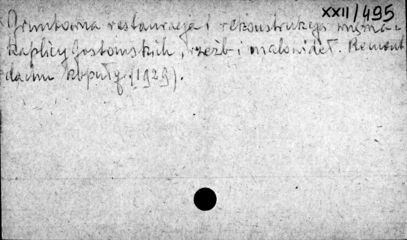 XXII/495
Gruntowna restauracja i rekonstrukcja
kaplicy Gostomskich, rzeźb i malowideł. Remont
dachu kopuły (1929).